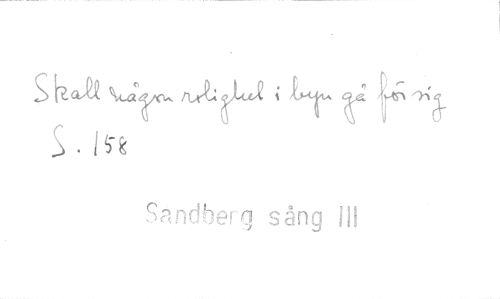 Skall någon rolighet i byn gå för sig
S. 158
Sandberg sång III